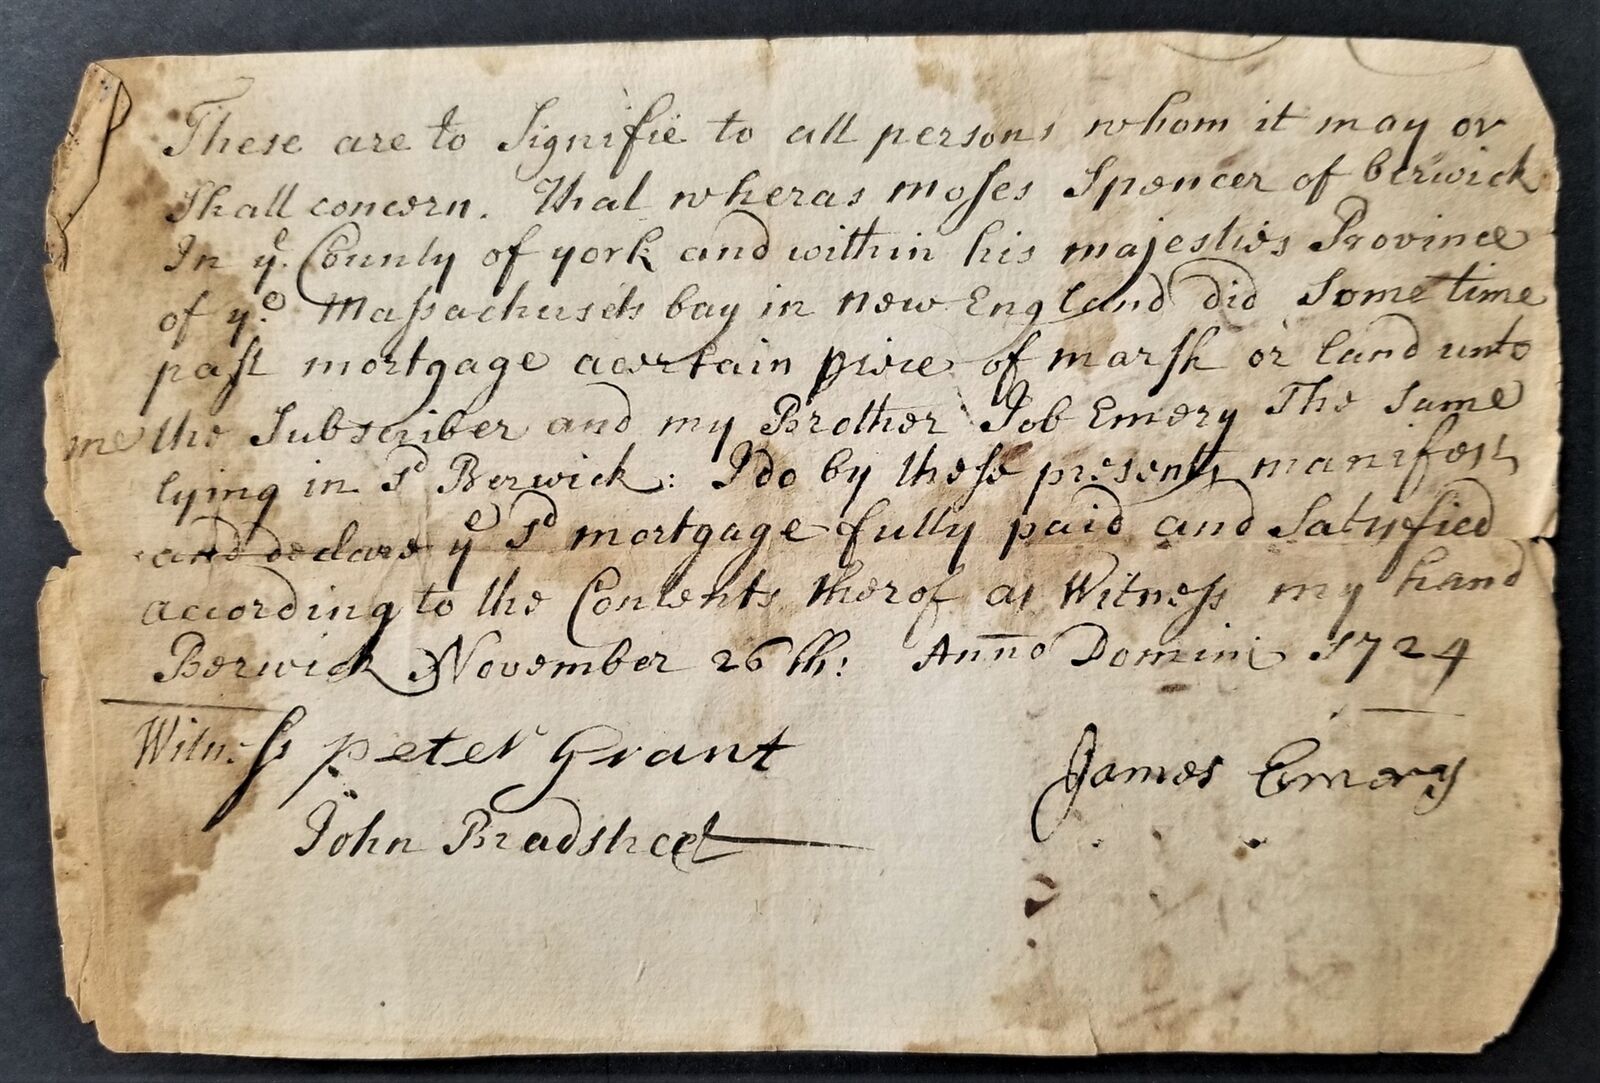 These are to Signifie to all persons whom it may or
Shall concern. That wheras Moses Spencer of berwick
In ye. County of york and within his majesties Province
of ye. Massachusets bay in New England did Some time
past mortgage a certain piece of marsh or land unto
me the Subscriber and my Brother Job Emery The Same
lying in sd Berwick: I do by these presents manifest
and declare ye sd mortgage fully paid and Satisfied
according to the Contents therof as Witness my hand
Berwick November 26th: Anno Domini 1724
Witness peter Grant
James Emery
John Bradstreet